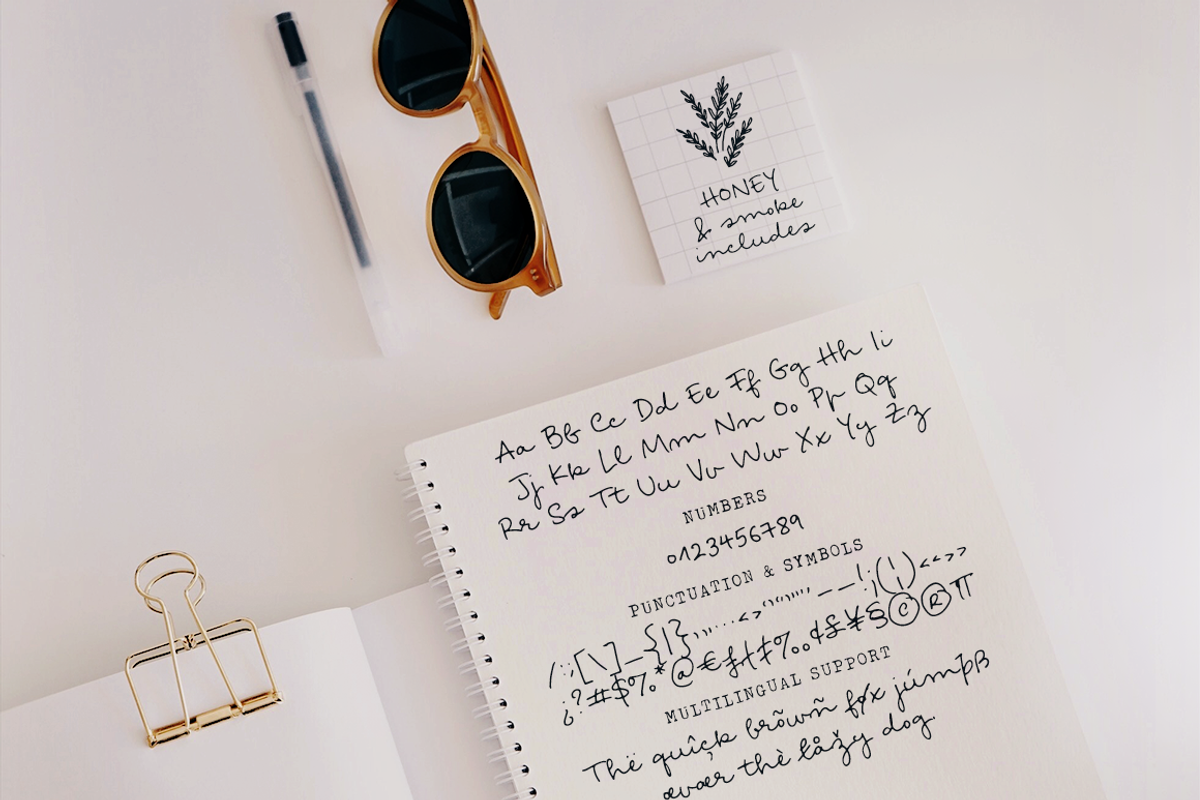 HONEY
& smoke
includes
Aa Bb Cc Dd Ee Ff Gg Hh Ii
Jj Kk Ll Mm Nn Oo Pp Qq
Rr Ss Tt Uu Vv Ww Xx Yy Zz
NUMBERS
0123456789
PUNCTUATION & SYMBOLS
/:;[\]_{|}
¿?#$%*@€£ƒ‡‰¢£¥§©®¶
MULTILINGUAL SUPPORT
Thë quîçk brõwñ føx júmþß
œvær thè łåžy dog